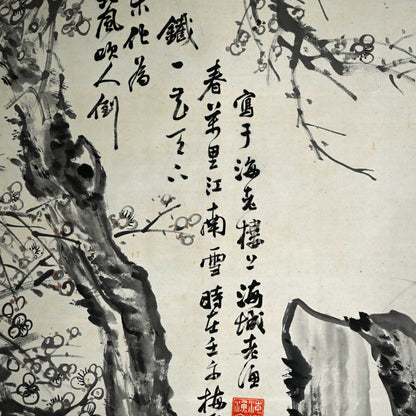 風吹人倒
化為
鐵一花天下
春萬里江南雪時在壬午梅
寫于海老樓上海城老漁